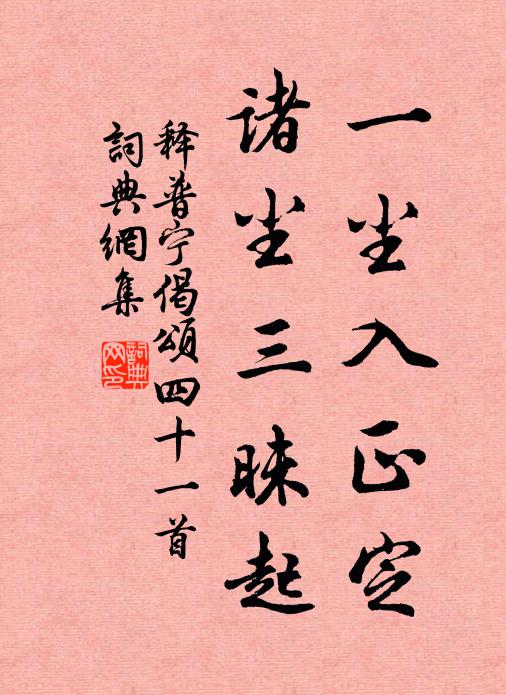 一尘入正定
诸尘三昧起
释普宁偈頌四十一首
詞典網集
詞典网印